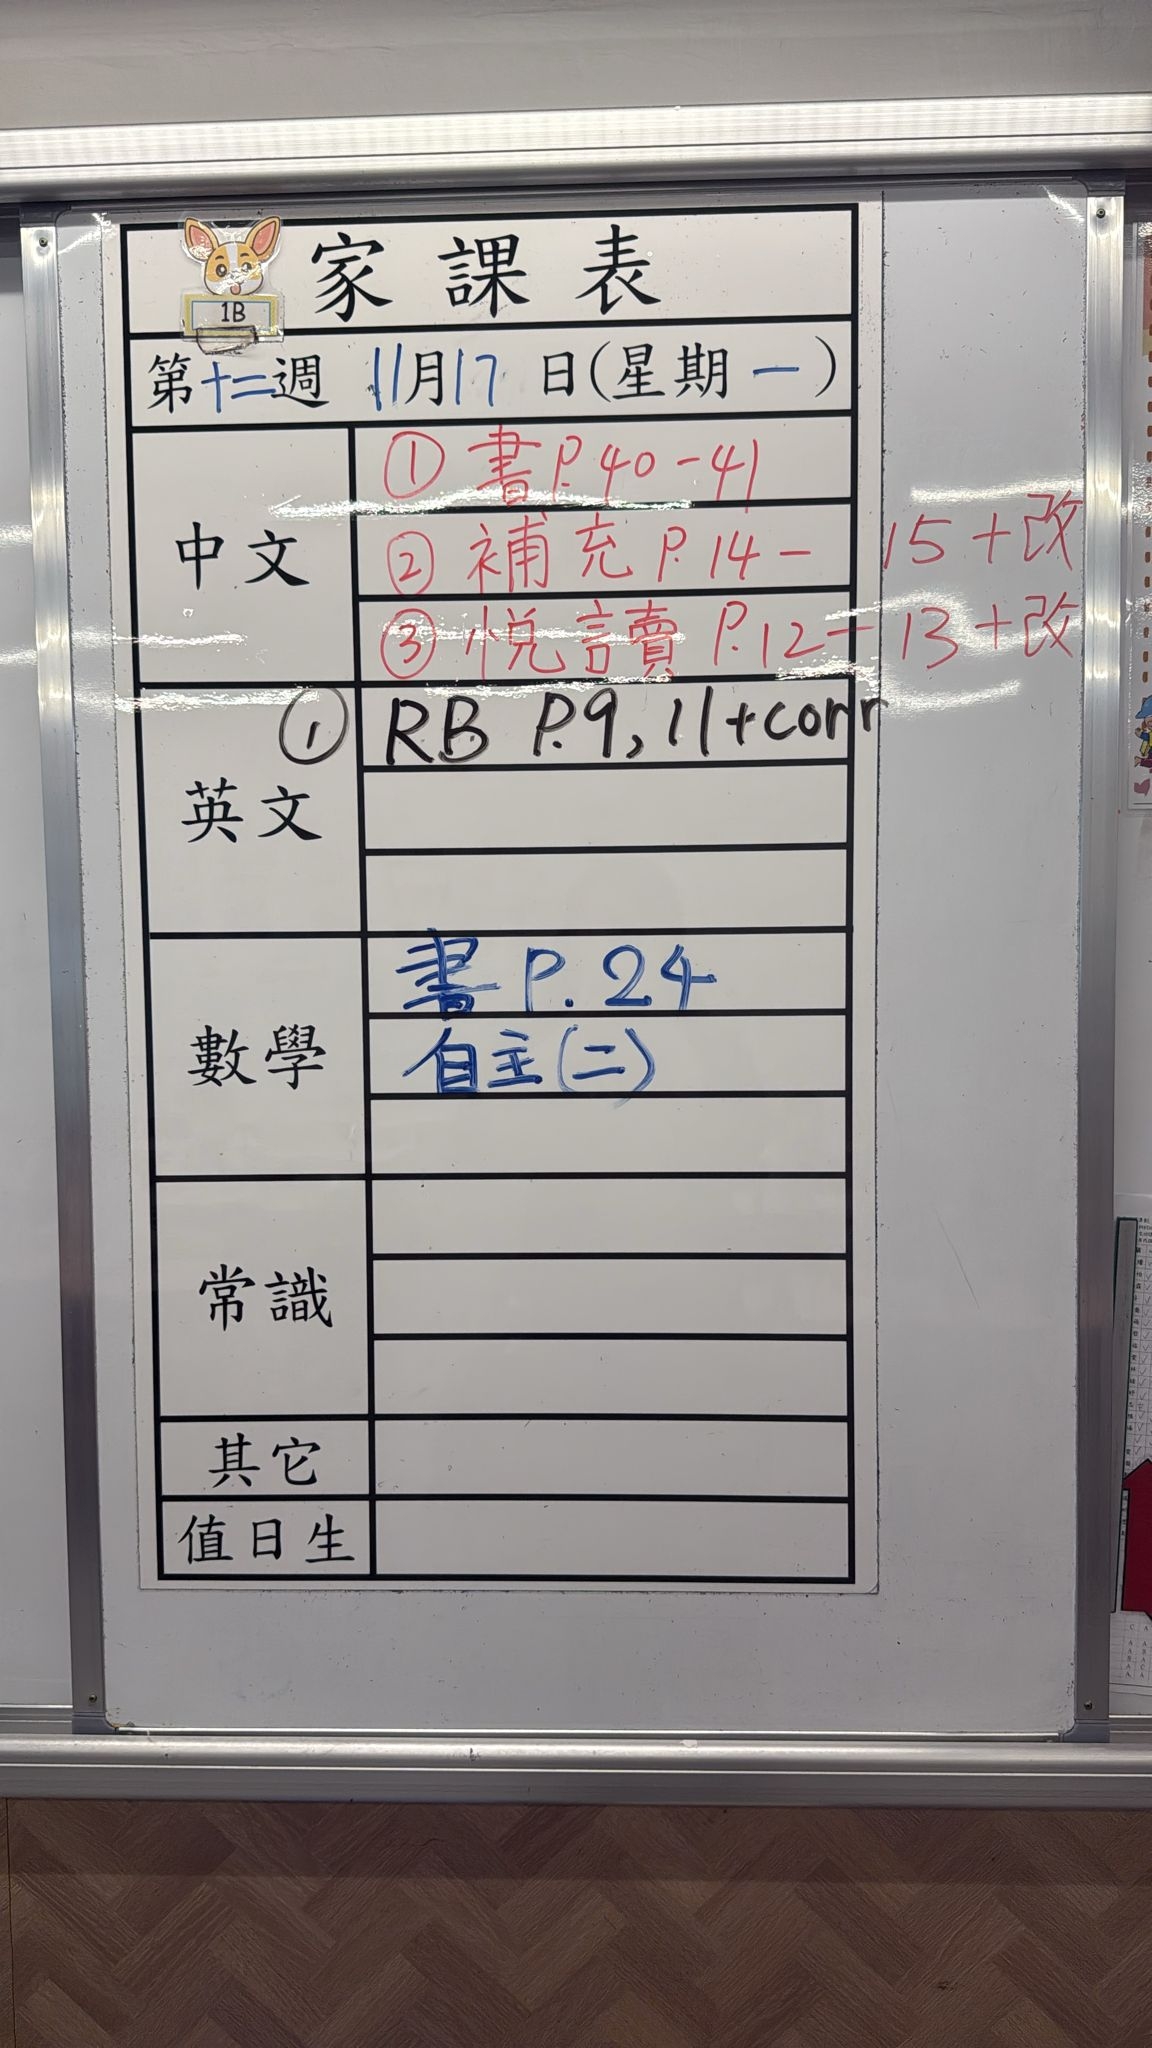 家課表
1B
第十二週 11月17日(星期一)
中文
① 書P.40-41
② 補充P.14-15+改
③ 悅讀P.12-13+改
英文
① RB P.9, 11+corr
數學
書P.24
自主(二)
常識
其它
值日生